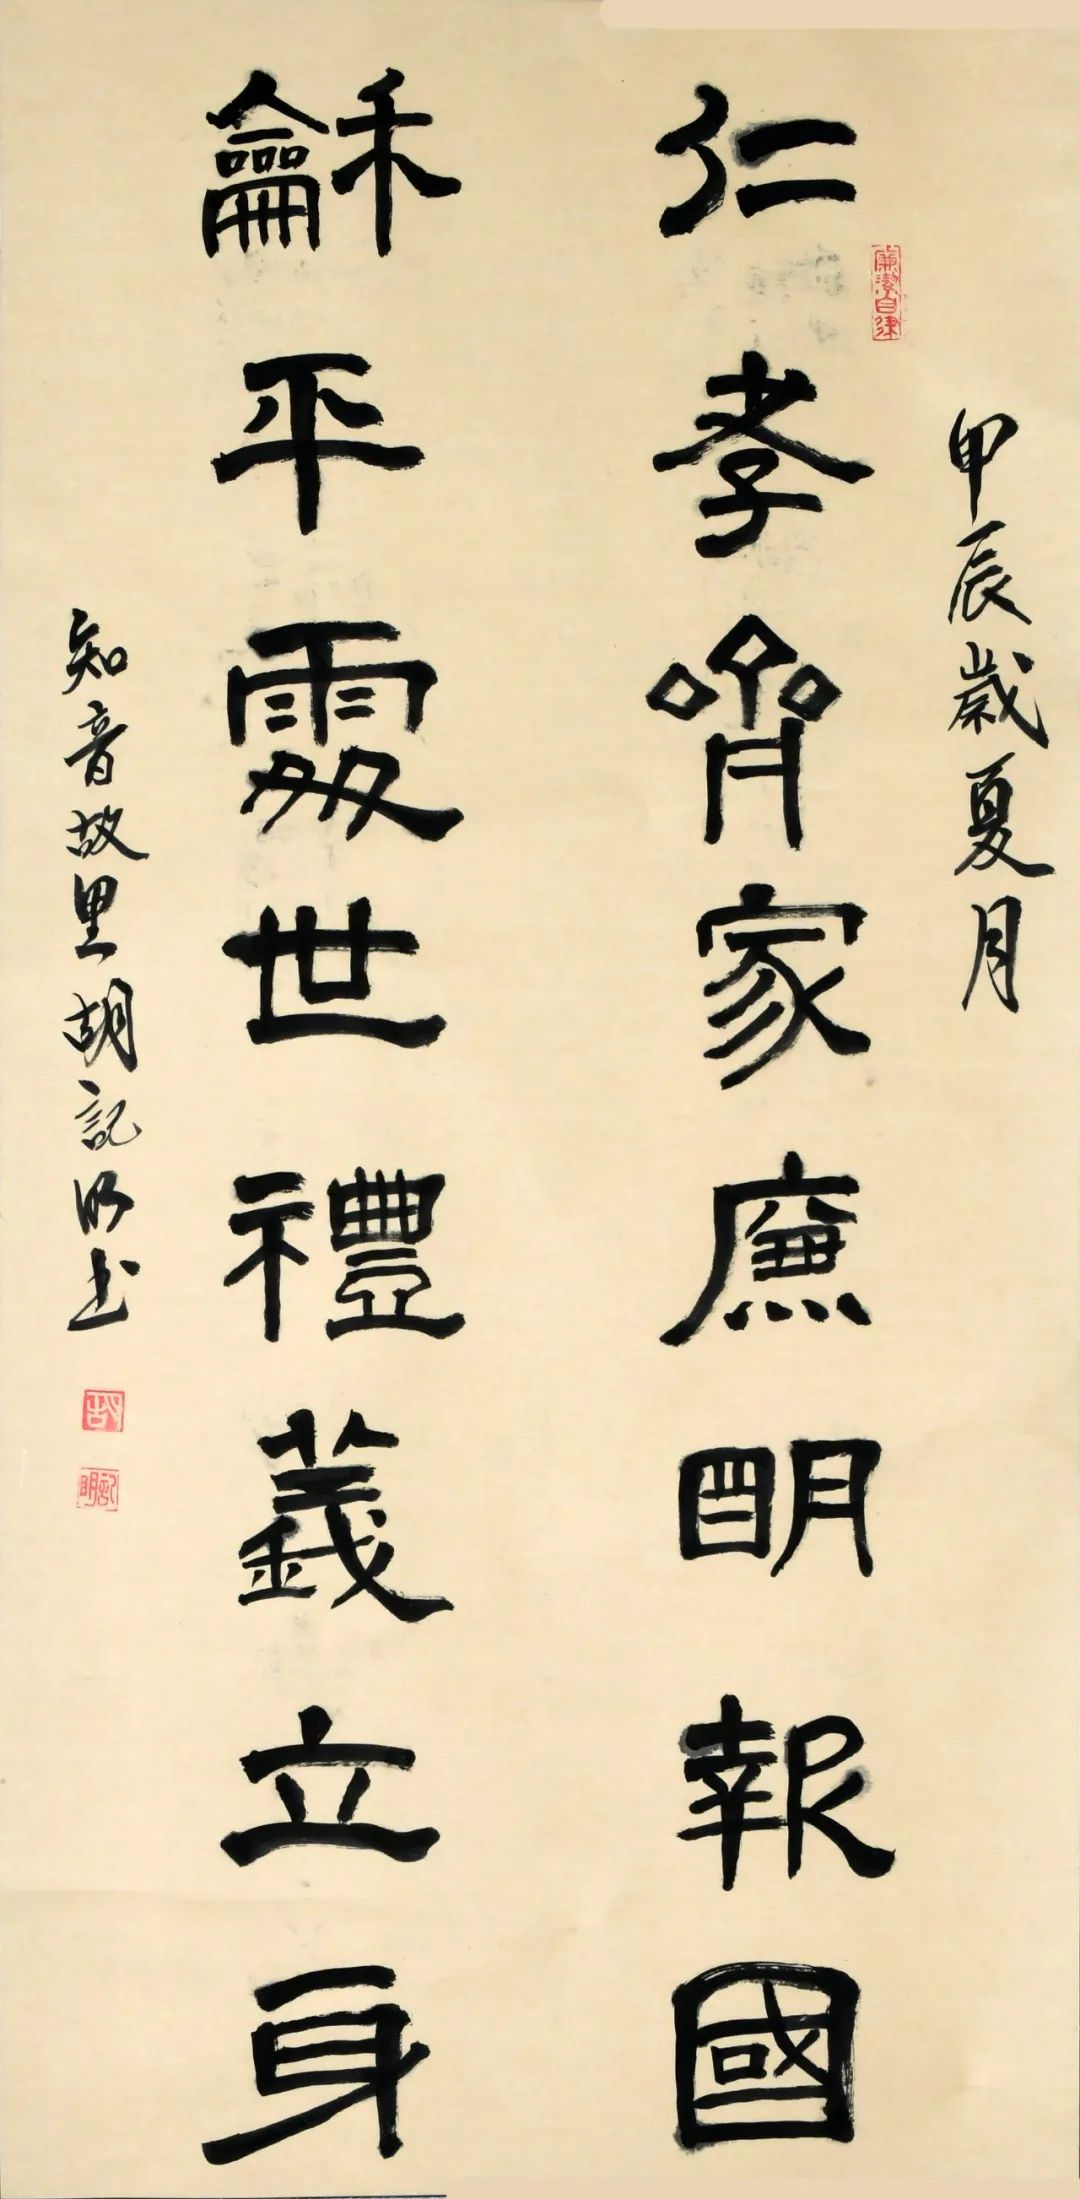 甲辰歲夏月
廉潔自律
仁孝齊家廉明報國
龢平處世禮義立身
知音故里胡記明书
胡
記明